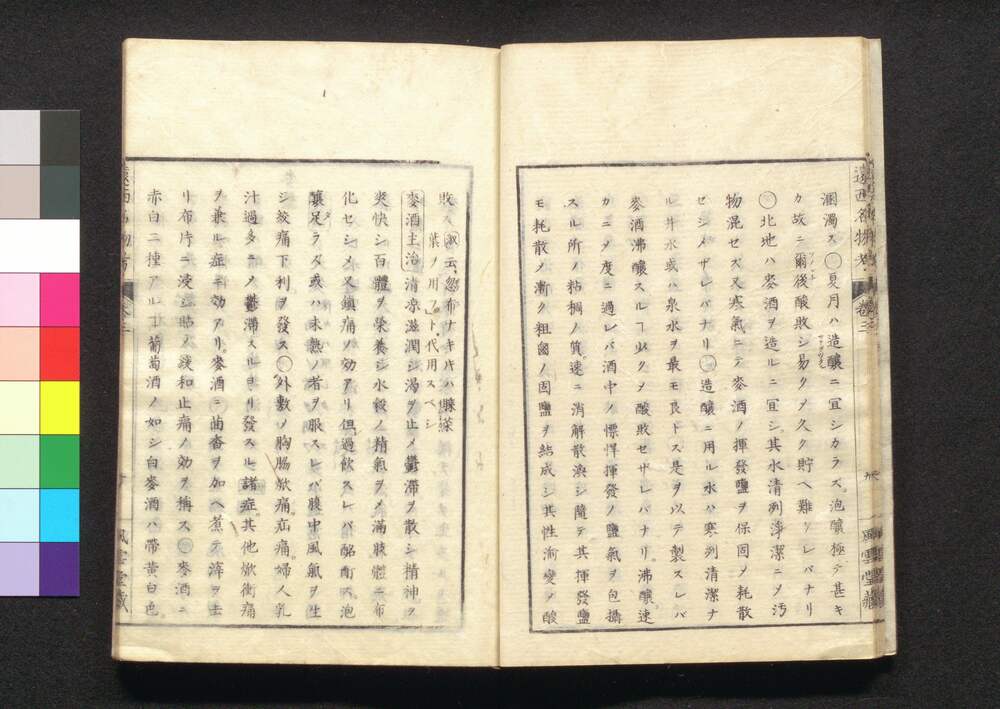 遠西名物考 卷三
溷濁ス〇夏月ハ造釀ニ冝シカラズ泡釀極テ甚キ
カ故ニ爾後酸敗シ易クメ久ク貯ヘ難ケレバナリ
〇北地ハ麥酒ヲ造ルニ冝シ其水清冽淨潔ニメ汚
物混セズ又寒氣ニテ麥酒ノ揮發鹽ヲ保固メ耗散
セシメザレバナリ〇造釀ニ用ル水ハ寒冽清潔ナ
ル井水或ハ泉水ヲ最モ良トス是ヲ以テ製スレバ
麥酒沸釀スルヿ少クメ酸敗セザレバナリ沸釀速
カニメ度ニ過レバ酒中ノ慓悍揮發ノ鹽氣ヲ包攝
スル所ノ粘稠ノ質速ニ消解散渙シ隨テ其揮發鹽
モ耗散メ漸ク粗固ノ固鹽ヲ結成シ其性渝變メ酸
風雲堂藏
敗ス 㕝云忽布ナキ片ハ睽菜
葉ノ用フベト代用スベシ
麥酒主治 清凉滋潤シ渴ヲ止メ鬱滯ヲ散シ精神ヲ
爽快シ百體ヲ榮養シ水穀ノ精氣ヲメ滿肢體ニ布
化セシメ又鎭痛ノ効アリ但過飮スレバ酩酊ス泡
釀足ラズ或ハ未熟ノ者ヲ服スレバ腹中風氣ヲ生
シ絞痛下利ヲ發ス〇外敷メ胸脇焮痛疝痛婦人乳
汁過多ニメ鬱滯スルヨリ發スル諸症其他焮衝痛
ヲ兼ル症ニ効アリ麥酒ニ茴香ヲ加ヘ煮テ滓ヲ去
リ布片ニ浸シ貼メ緩和止痛ノ効ヲ稱ス〇麥酒ニ
赤白二種アルヿ葡萄酒ノ如シ白麥酒ハ帶黄白色
風雲堂藏